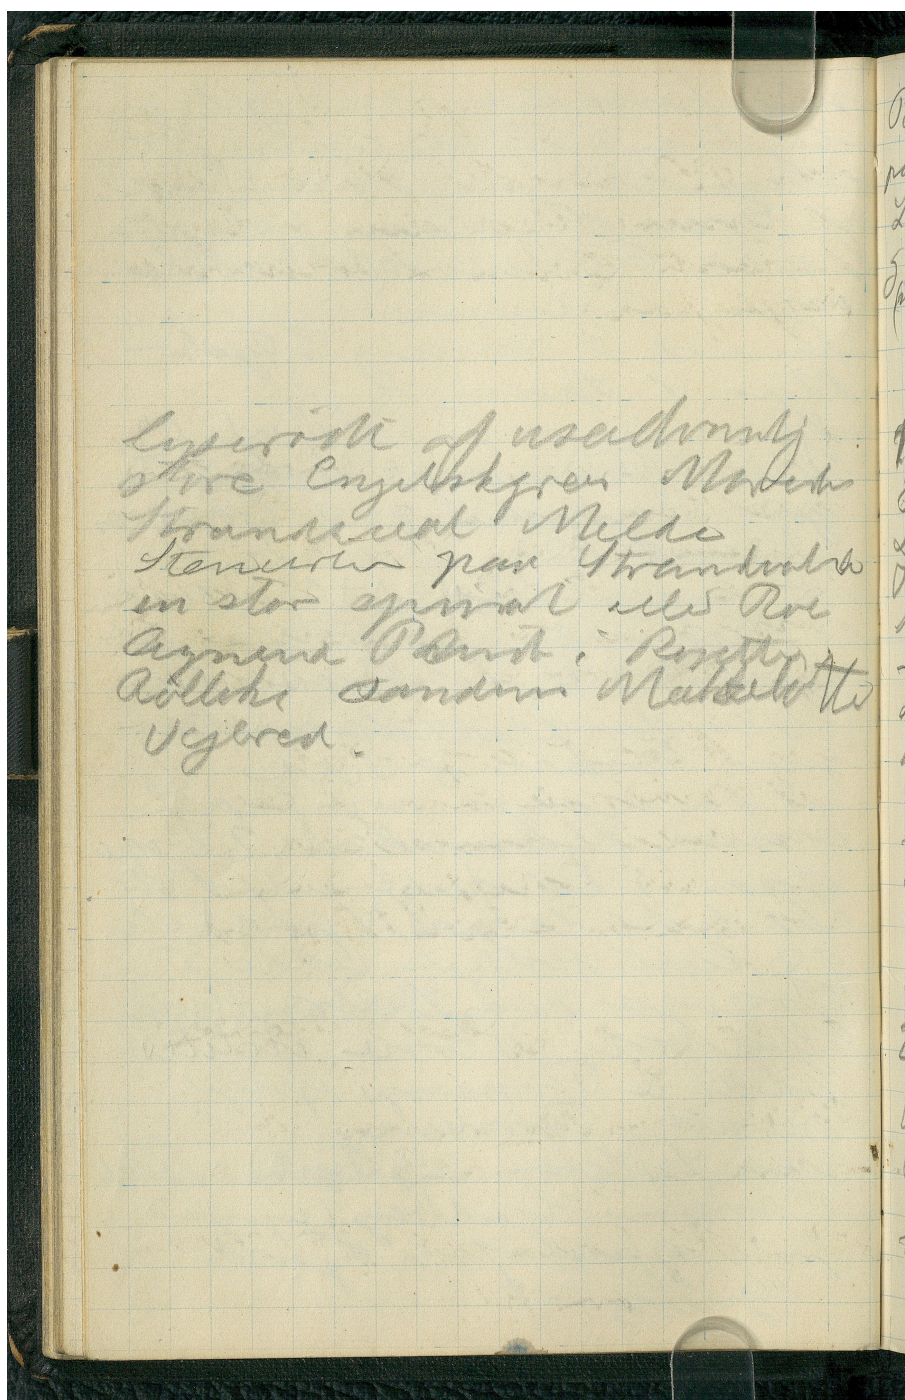 lyserödt af usædvanlig
store Engelskgræs Marehalm
Strandkaal Melde
Stenurter paa Strandvolde
en stor spiral eller Roe
lignend Plante i Rosetter
Röllike Vandum
Vejbred.